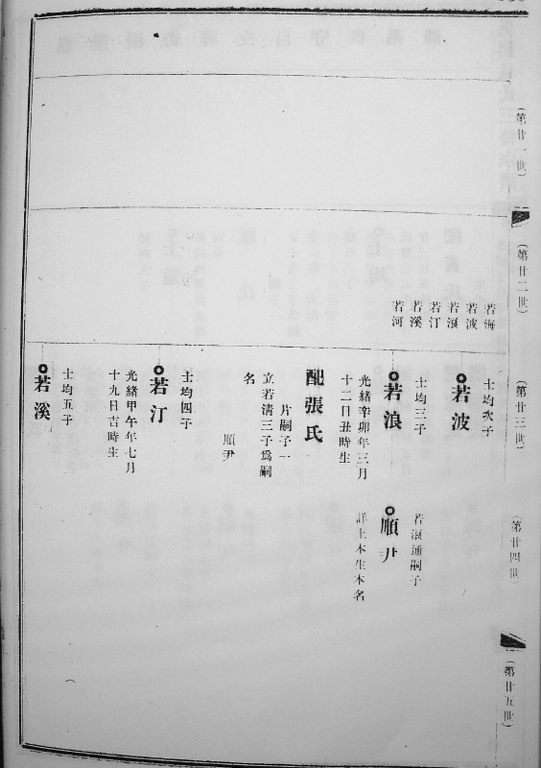 (第廿一世)
(第廿二世)
(第廿三世)
(第廿四世)
(第廿五世)
若海
若波
若浪
若汀
若溪
若河
士均次子
若波
士均三子
若浪
光緒辛卯年三月
十二日丑時生
配張氏
片嗣子一
立若清三子為嗣
名
順尹
士均四子
若汀
光緒甲午年七月
十九日吉時生
士均五子
若溪
若浪通嗣子
順尹
詳上本生本名